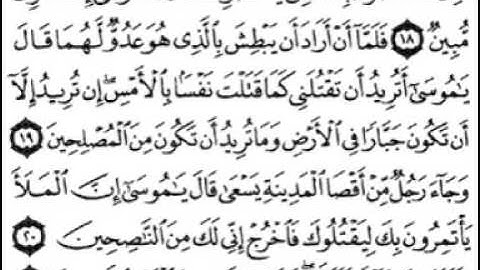 مُّبِينٌ ﴿١٨﴾ فَلَمَّآ أَنْ أَرَادَ أَن يَبْطِشَ بِٱلَّذِى هُوَ عَدُوٌّ لَّهُمَا قَالَ
يَٰمُوسَىٰٓ أَتُرِيدُ أَن تَقْتُلَنِى كَمَا قَتَلْتَ نَفْسًۢا بِٱلْأَمْسِ ۖ إِن تُرِيدُ إِلَّآ
أَن تَكُونَ جَبَّارًا فِى ٱلْأَرْضِ وَمَا تُرِيدُ أَن تَكُونَ مِنَ ٱلْمُصْلِحِينَ ﴿١٩﴾
وَجَآءَ رَجُلٌ مِّنْ أَقْصَا ٱلْمَدِينَةِ يَسْعَىٰ قَالَ يَٰمُوسَىٰٓ إِنَّ ٱلْمَلَأَ
يَأْتَمِرُونَ بِكَ لِيَقْتُلُوكَ فَٱخْرُجْ إِنِّى لَكَ مِنَ ٱلنَّٰصِحِينَ ﴿٢٠﴾